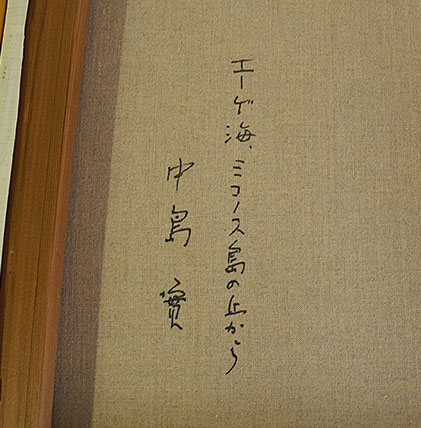 エーゲ海、ミコノス島の丘から
中島 實